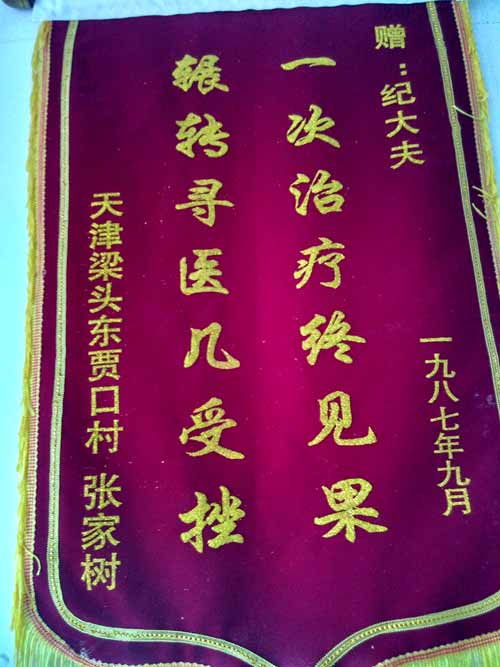 赠：纪大夫
一九八七年九月
一次治疗终见果
辗转寻医几受挫
天津梁头东贾口村 张家树